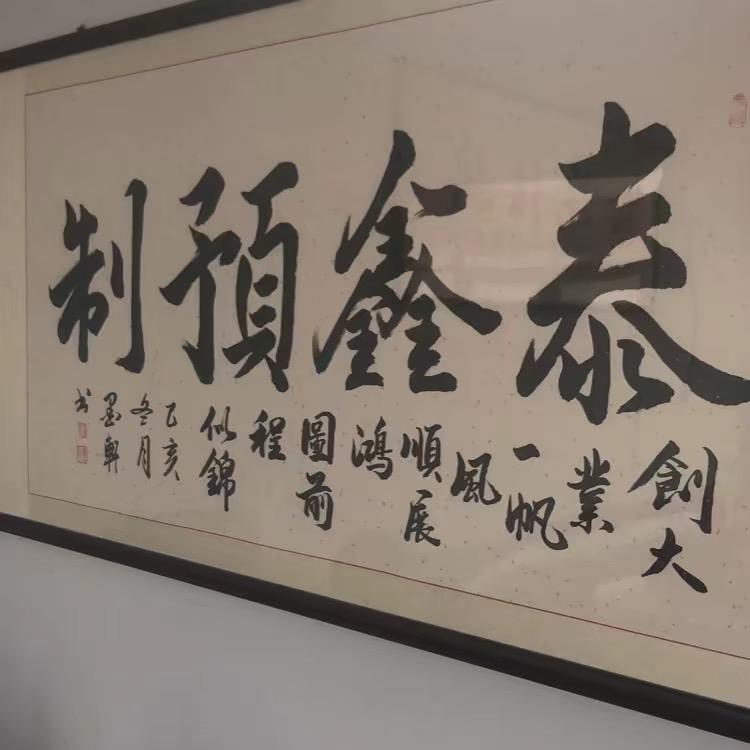 泰鑫預制
創大
業
一帆
風
順展
鴻
圖前
程
似錦
乙亥
冬月
墨軒
书